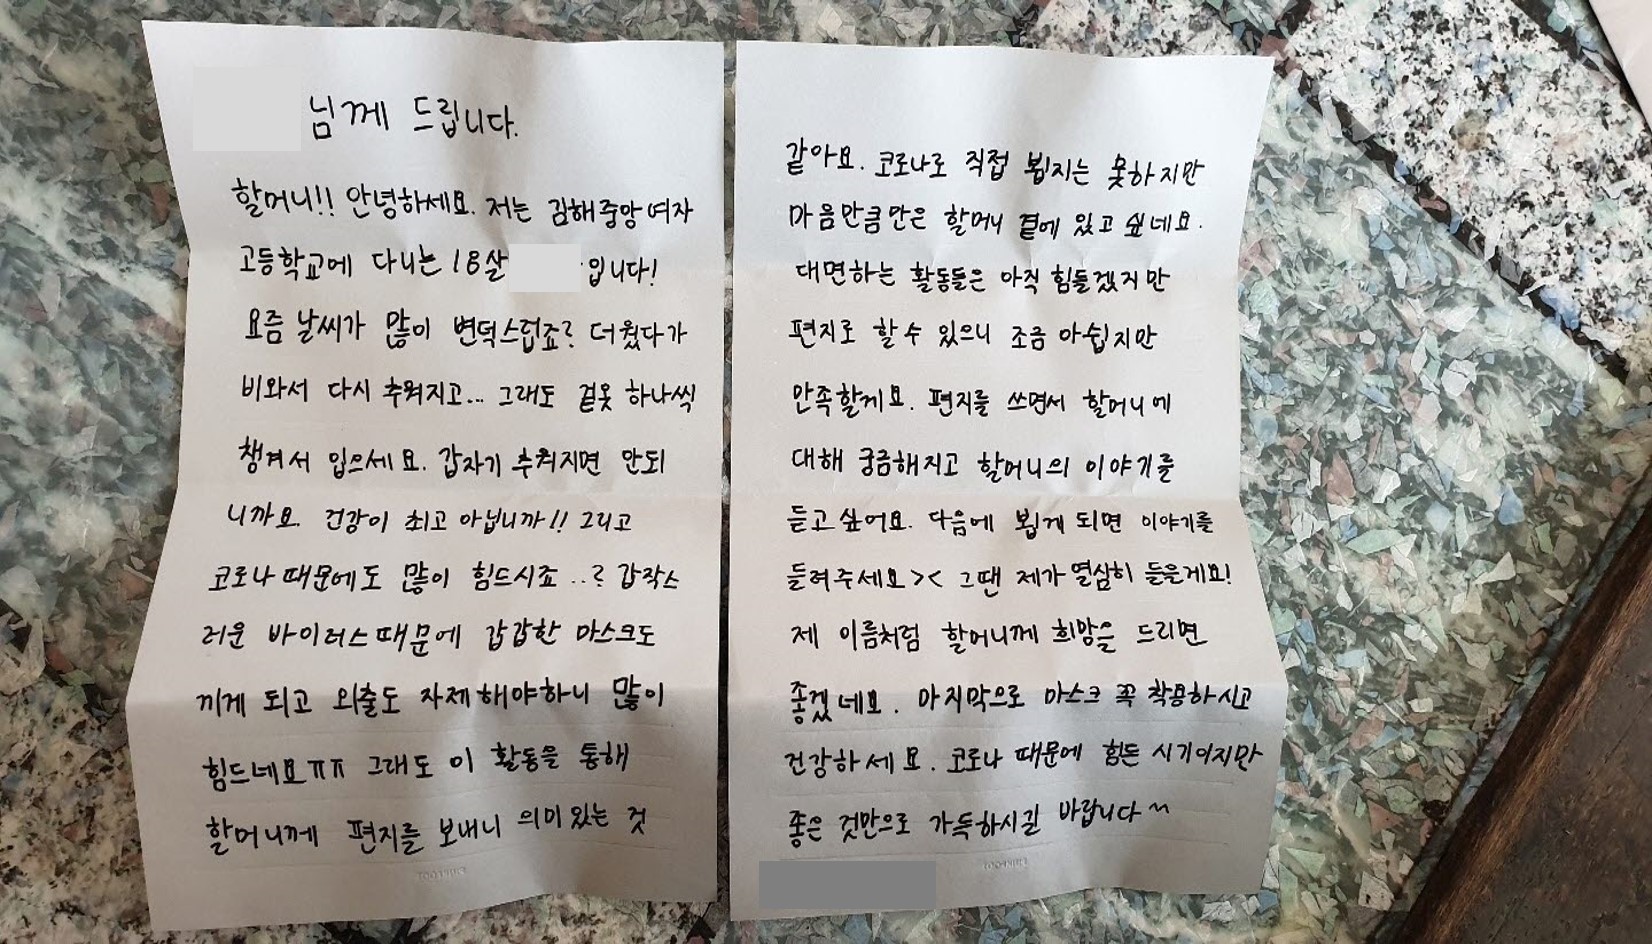 님께 드립니다.
할머니!! 안녕하세요. 저는 김해중앙여자
고등학교에 다니는 18살 입니다!
요즘 날씨가 많이 변덕스럽죠? 더웠다가
비와서 다시 추워지고... 그래도 겉옷 하나씩
챙겨서 입으세요. 갑자기 추워지면 안되
니까요. 건강이 최고 아닙니까!! 그리고
코로나 때문에도 많이 힘드시죠..? 갑작스
러운 바이러스때문에 갑갑한 마스크도
끼게 되고 외출도 자제해야하니 많이
힘드네요ㅠㅠ 그래도 이 활동을 통해
할머니께 편지를 보내니 의미있는 것
같아요. 코로나로 직접 뵙지는 못하지만
마음만큼만은 할머니 곁에 있고 싶네요.
대면하는 활동들은 아직 힘들겠지만
편지로 할 수 있으니 조금 아쉽지만
만족할게요. 편지를 쓰면서 할머니에
대해 궁금해지고 할머니의 이야기를
듣고싶어요. 다음에 뵙게 되면 이야기를
들려주세요>< 그땐 제가 열심히 들을게요!
제 이름처럼 할머니께 희망을 드리면
좋겠네요. 마지막으로 마스크 꼭 착용하시고
건강하세요. 코로나 때문에 힘든 시기이지만
좋은 것만으로 가득하시길 바랍니다~